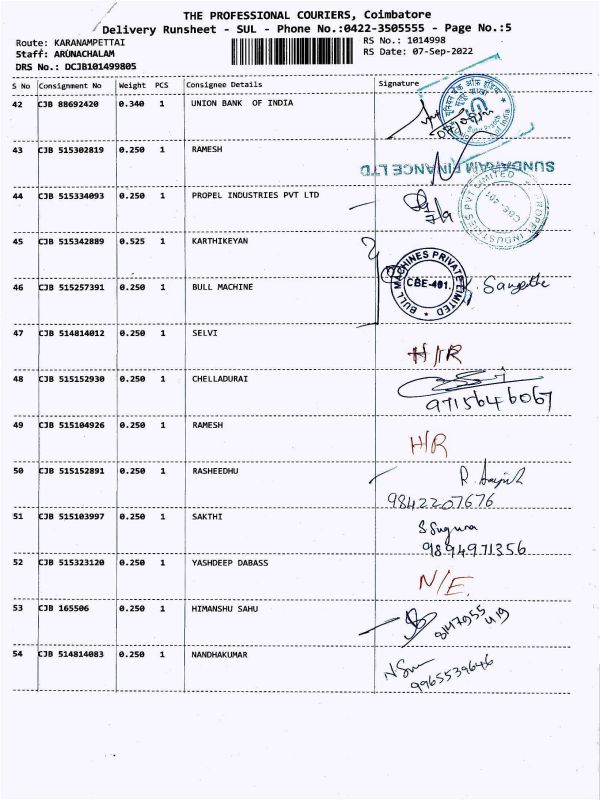 THE PROFESSIONAL COURIERS, Coimbatore
Delivery Runsheet - SUL - Phone No.:0422-3505555 - Page No.:5
Route: KARANAMPETTAI
RS No.: 1014998
Staff: ARUNACHALAM
RS Date: 07-Sep-2022
DRS No.: DCJB101499805
S No Consignment No Weight PCS Consignee Details Signature
42 CJB 88692420 0.340 1 UNION BANK OF INDIA
43 CJB 515302819 0.250 1 RAMESH
SUNDARAM FINANCE LTD
44 CJB 515334093 0.250 1 PROPEL INDUSTRIES PVT LTD
PROPEL INDUSTRIES PVT LIMITED
CBE - 401
45 CJB 515342889 0.525 1 KARTHIKEYAN
46 CJB 515257391 0.250 1 BULL MACHINE
BULL MACHINES PRIVATE LIMITED
CBE-401.
47 CJB 514814012 0.250 1 SELVI
H/R
48 CJB 515152930 0.250 1 CHELLADURAI
9715646067
49 CJB 515104926 0.250 1 RAMESH
H/R
50 CJB 515152891 0.250 1 RASHEEDHU
9842207676
51 CJB 515103997 0.250 1 SAKTHI
S Suguna
9894971356
52 CJB 515323120 0.250 1 YASHDEEP DABASS
N/E.
53 CJB 165506 0.250 1 HIMANSHU SAHU
54 CJB 514814083 0.250 1 NANDHAKUMAR
9965539646